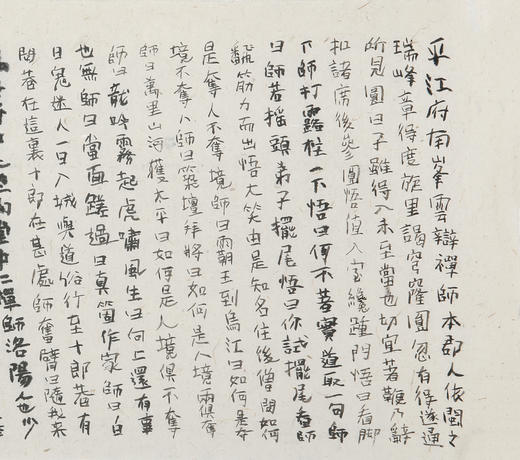 平江府南峯雲辯禪師本郡人依閩之
瑞峰章得度旋里謁穹窿圓忽有得遂通
所見圓曰子雖得入未至當也切宜著鞭乃辭
扣諸席後參圓悟值入室纔踵門悟曰看脚
下師打露柱一下悟曰何不著實道取一句師
曰師若搖頭弟子擺尾悟曰你試擺尾看師
翻筋力而出悟大笑由是知名住後僧問如何
是奪人不奪境師曰霸王到烏江曰如何是奪
境不奪人師曰築壇拜將曰如何是人境兩俱奪
師曰萬里山河獲太平曰如何是人境俱不奪
師曰龍吟霧起虎嘯風生曰向上還有事
也無師曰當面蹉過曰真箇作家師曰白
日鬼迷人一日入城與道俗行至十郎巷有
問巷在這裏十郎在甚處師奮臂曰隨我來
禪師洛陽人也少